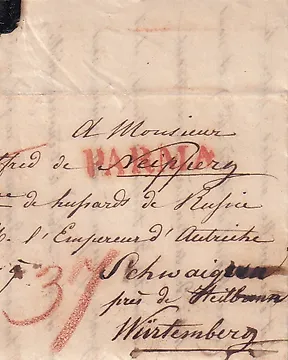 A Monsieur
fred de Neipperg
PARMA
de husards de Russie
l'Empereur d'Autriche
37
Schwaigern
près de Heilbronn
Würtemberg